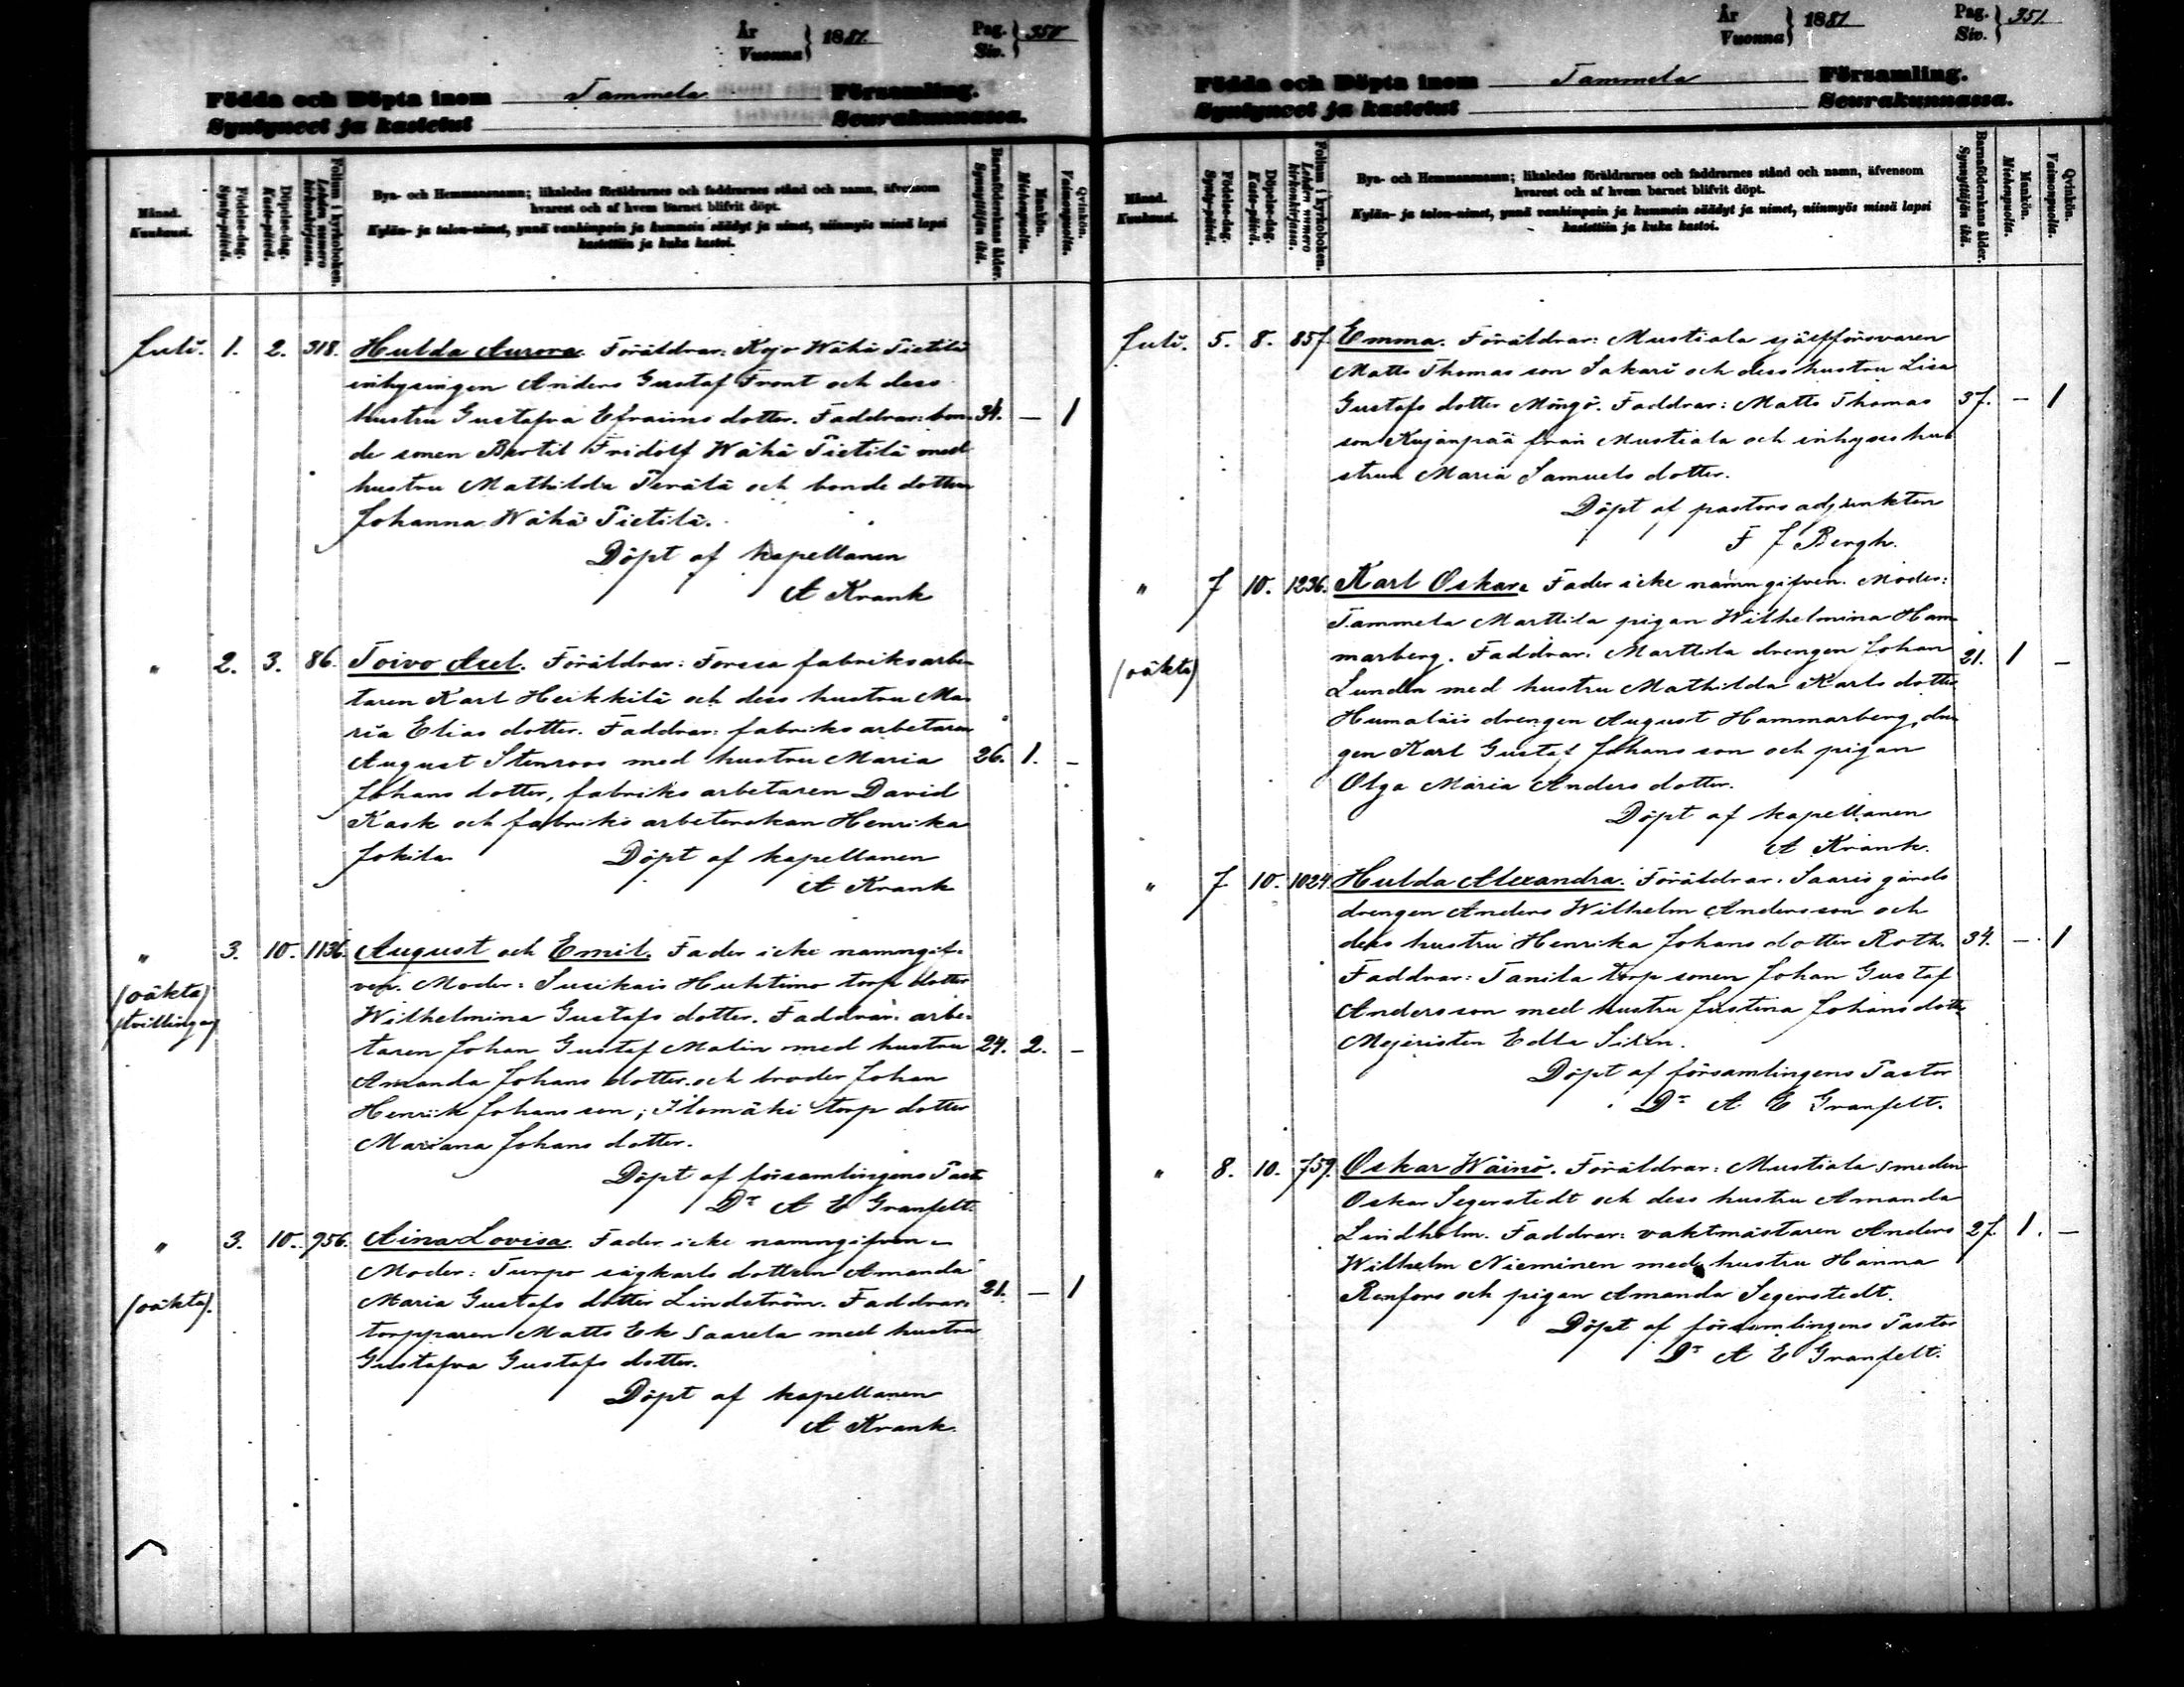 År
Vuonna } 1881
Pag.
Siv. } 350
Födda och Döpta inom Tammela Församling.
Syntyneet ja kastetut Seurakunnassa.
Månad.
Kuukausi.
Födelse-dag.
Synty-päivä.
Döpelse-dag.
Kaste-päivä.
Folium i kyrkoboken.
Lehden numero
kirkonkirjassa.
Bya- och Hemmansnamn; likaledes föräldrarnes och faddrarnes stånd och namn, äfvensom
hvarest och af hvem barnet blifvit döpt.
Kylän- ja talon-nimet, ynnä vanhimpain ja kummein säädyt ja nimet, niinmyös missä lapsi
kastettiin ja kuka kastoi.
Barnaföderskans ålder.
Synnyttäjän ikä.
Mankön.
Miehenpuolia.
Qvinkön.
Vaimonpuolia.
Juli. 1. 2. 318. Hulda Aurora. Föräldrar: Kojo Wähä Pietilä
inhysingen Anders Gustaf Front och dess
hustru Gustafva Efraims dotter. Faddrar: bon- 31. — 1
de sonen Bertil Fridolf Wähä Pietilä med
hustru Mathilda Perälä och bonde dottren
Johanna Wähä Pietilä.
Döpt af kapellanen
A Krank
" 2. 3. 86. Toivo Axel. Föräldrar: Forssa fabriksarbe-
taren Karl Heikkilä och dess hustru Ma-
ria Elias dotter. Faddrar: fabriks arbetaren
August Stenroos med hustru Maria 26. 1. —
Johans dotter, fabriks arbetaren David
Kask och fabriks arbeterskan Henrika
Jokila Döpt af kapellanen
A Krank
" 3. 10. 1136. August och Emil. Fader icke namngif-
(oäkta) ven. Moder: Susikais Huhtimo torp dotter
tvillingar) Wilhelmina Gustafs dotter. Faddrar: arbe-
taren Johan Gustaf Malin med hustru 24. 2. —
Amanda Johans dotter och broder Johan
Henrik Johansson; Ilomäki torp dotter
Mariana Johans dotter.
Döpt af församlingens Past.
Dr A E Granfelt.
" 3. 10. 956. Aina Lovisa. Fader icke namngifven.
Moder: Turpo sågkarls dottren Amanda
(oäkta). Maria Gustafs dotter Lindström. Faddrar: 21. — 1
torpparen Matts Ek Saarela med hustru
Gustafva Gustafs dotter.
Döpt af kapellanen
A Krank.
År
Vuonna } 1881
Pag.
Siv. } 351.
Födda och Döpta inom Tammela Församling.
Syntyneet ja kastetut Seurakunnassa.
Månad.
Kuukausi.
Födelse-dag.
Synty-päivä.
Döpelse-dag.
Kaste-päivä.
Folium i kyrkoboken.
Lehden numero
kirkonkirjassa.
Bya- och Hemmansnamn; likaledes föräldrarnes och faddrarnes stånd och namn, äfvensom
hvarest och af hvem barnet blifvit döpt.
Kylän- ja talon-nimet, ynnä vanhimpain ja kummein säädyt ja nimet, niinmyös missä lapsi
kastettiin ja kuka kastoi.
Barnaföderskans ålder.
Synnyttäjän ikä.
Mankön.
Miehenpuolia.
Qvinkön.
Vaimonpuolia.
Juli. 5. 8. 857 Emma. Föräldrar: Mustiala sjelfförsvaren
Matts Thomas son Sakari och dess hustru Lisa
Gustafs dotter Möngö. Faddrar: Matts Thomas 37. — 1
son Kujanpää från Mustiala och inhyses hu-
strun Maria Samuels dotter.
Döpt af pastors adjunkten
F J Bergh.
" 7 10. 1236. Karl Oskar. Fader icke namngifven. Moder:
Tammela Marttila pigan Wilhelmina Ham-
(oäkta) marberg. Faddrar: Marttila drengen Johan 21. 1 —
Lundén med hustru Mathilda Karls dotter
Humalais drengen August Hammarberg, dren-
gen Karl Gustaf Johansson och pigan
Olga Maria Anders dotter.
Döpt af kapellanen
A Krank.
" 7 10. 1024. Hulda Alexandra. Föräldrar: Saaris gårds
drengen Anders Wilhelm Andersson och
dess hustru Henrika Johans dotter Roth. 34. — 1
Faddrar: Tanila torp sonen Johan Gustaf
Andersson med hustru Justina Johans dotter
Mejeristen Edla Silén.
Döpt af församlingens Pastor
Dr A E Granfelt.
" 8. 10. 759. Oskar Wäinö. Föräldrar: Mustiala smeden
Oskar Segerstedt och dess hustru Amanda
Lindholm. Faddrar: vaktmästaren Anders 27. 1. —
Wilhelm Nieminen med hustru Hanna
Renfors och pigan Amanda Segerstedt.
Döpt af församlingens Pastor
Dr A E Granfelt.